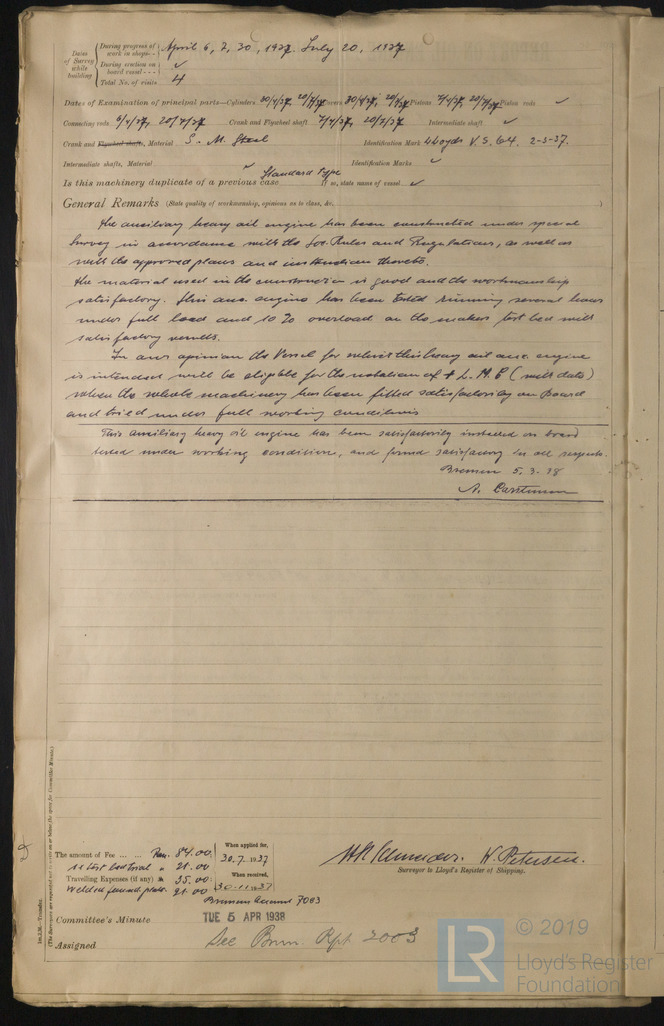 Dates of Survey while building
During progress of work in shops - - April 6, 7, 30, 1937. July 20, 1937
During erection on board vessel - - - ✓
Total No. of visits 4
Dates of Examination of principal parts—Cylinders 30/4/37, 20/7/37 Covers 30/4/37, 20/7/37 Pistons 7/4/37, 20/7/37 Piston rods ✓
Connecting rods 6/4/37, 20/7/37 Crank and Flywheel shaft 7/4/37, 20/7/37 Intermediate shaft ✓
Crank and Flywheel shaft, Material S. M. Steel Identification Mark Lloyds V.S. 64. 2-3-37.
Intermediate shafts, Material ✓ Identification Marks ✓
Is this machinery duplicate of a previous case Standard type If so, state name of vessel ✓
General Remarks (State quality of workmanship, opinions as to class, &c. )
The auxiliary heavy oil engine has been constructed under special
survey in accordance with the Soc. Rules and Regulations, as well as
with the approved plans and instruction thereto.
The material used in the construction is good and the workmanship
satisfactory. This aux. engine has been tested running several hours
under full load and 10 % overload on the makers test bed with
satisfactory results.
In our opinion the Vessel for which this heavy oil aux. engine
is intended will be eligible for the notation of + L.M.C (with date)
when the whole machinery has been fitted satisfactorily on board
and tried under full working conditions
This auxiliary heavy oil engine has been satisfactorily installed on board
tested under working condition, and found satisfactory in all respects.
Bremen 5.3.38
A. Carstensen
The amount of Fee ... ... Rm. 84.00
test bed trial " 21.00
Travelling Expenses (if any) " 35.00
Welded found. plate. 21.00
When applied for, 30.7.1937
When received, 30.11.1937
Bremen Account 7003
W. Petersen.
Surveyor to Lloyd's Register of Shipping.
Committee's Minute TUE 5 APR 1938
Assigned See Brm. Rpt. 2003
1m.1.M.—Transfer.
(The Surveyors are requested not to write on or below the space for Committee Minute.)
© 2019
LR
Lloyd's Register
Foundation